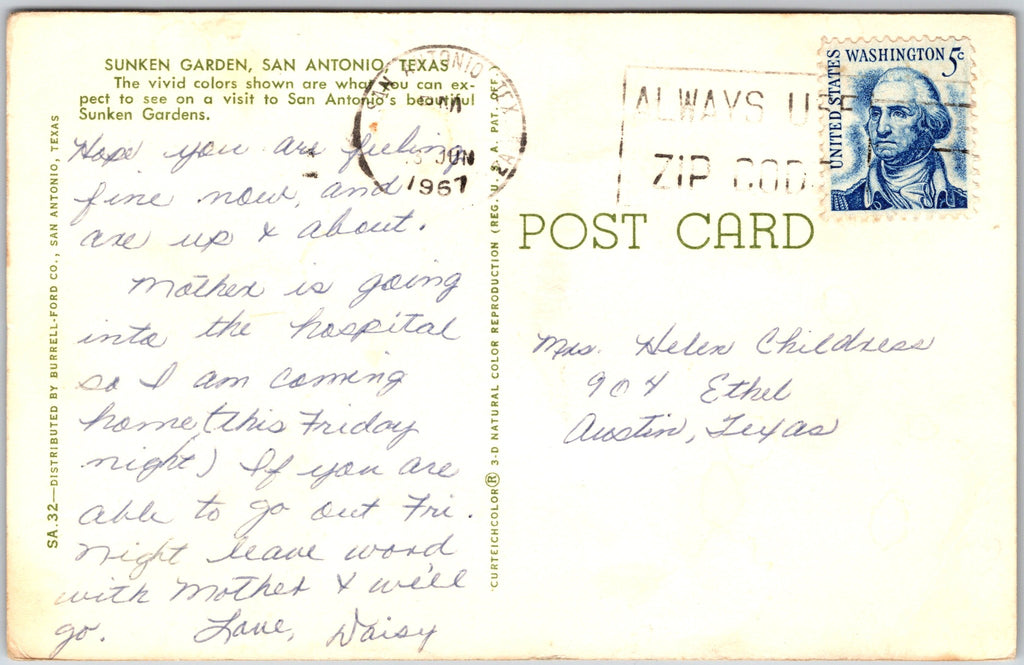 SUNKEN GARDEN, SAN ANTONIO, TEXAS
The vivid colors shown are what you can ex-
pect to see on a visit to San Antonio's beautiful
Sunken Gardens.
Hope you are feeling
fine now, and
are up & about.
Mother is going
into the hospital
so I am coming
home (this Friday
night) If you are
able to go out Fri.
night leave word
with Mother & we'll
go. Love, Daisy
SA.32—DISTRIBUTED BY BURRELL-FORD CO., SAN ANTONIO, TEXAS
CURTEICHCOLOR® 3-D NATURAL COLOR REPRODUCTION (REG. U. S. A. PAT. OFF.
SAN ANTONIO
JUN
1967
ALWAYS USE
ZIP COD
UNITED STATES
WASHINGTON 5c
POST CARD
Mrs. Helen Childress
904 Ethel
Austin, Texas